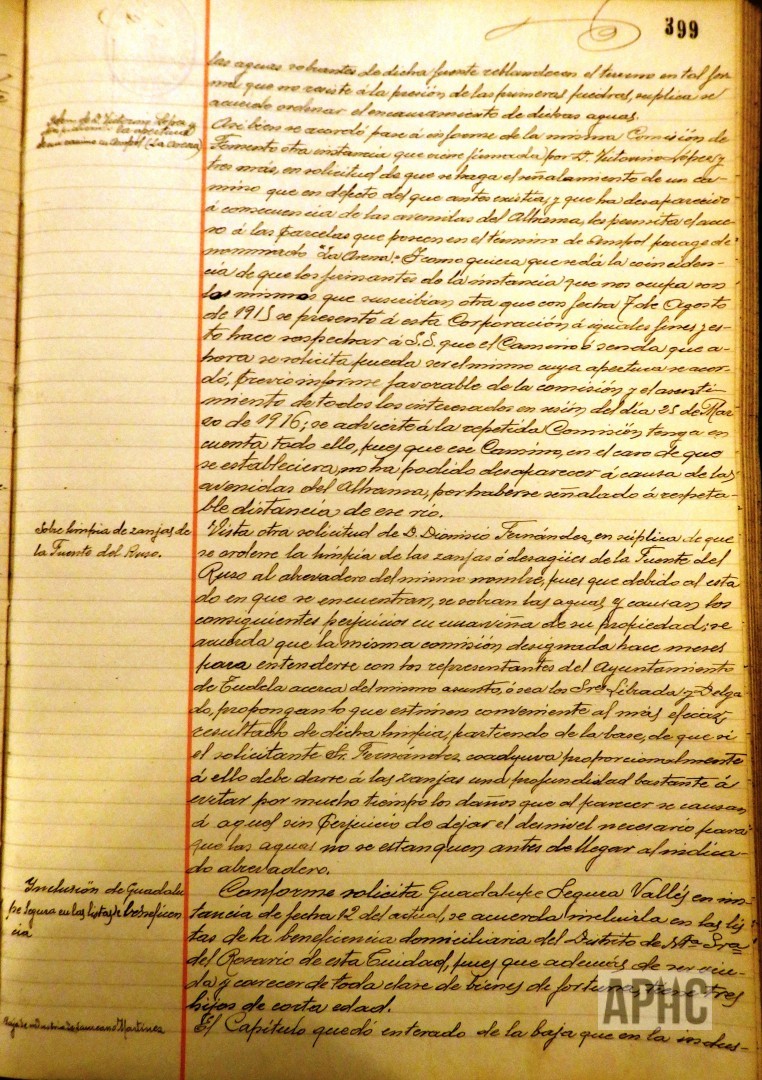 399
las aguas sobrantes de dicha fuente reblandecen el terreno en tal for-
ma que no resiste á la presión de las primeras piedras, suplica se
acuerde ordenar el encauzamiento de dichas aguas.
Sobre de D. Victorino López y
la apertura
de un camino en Ampol (La Arena)
Asi bien se acordó pase á informe de la misma Comisión de
Fomento otra instancia que viene firmada por D. Victorino López y
tres más, en solicitud de que se haga el señalamiento de un ca-
mino que en defecto del que antes existía, y que ha desaparecido
á consecuencia de las avenidas del Alhama, les permita el acce-
so á las parcelas que poseen en el término de Ampol parage de-
nominado "La Arena". Y como quiera que se dá la coinciden-
cia de que los firmantes de la instancia que nos ocupa son
los mismos que suscribian otra que con fecha 7 de Agosto
de 1915 se presentó á esta Corporación á iguales fines y es-
to hace sospechar á S.S. que el Camino ó senda que a-
hora se solicita pueda ser el mismo cuya apertura se acor-
dó, previo informe favorable de la comisión y el asenti-
miento de todos los interesados en sesión del día 25 de Mar-
zo de 1916; se advierte á la repetida Comisión tenga en
cuenta todo ello, pues que ese Camino, en el caso de que
se estableciera, no ha podido desaparecer á causa de las
avenidas del Alhama, por haberse señalado á respeta-
ble distancia de ese rio.
Sobre limpia de zanjas de
la Fuente del Ruso.
Vista otra solicitud de D. Dionisio Fernández, en súplica de que
se ordene la limpia de las zanjas ó desagües de la Fuente del
Ruso al abrevadero del mismo nombre, pues que debido al esta
do en que se encuentran, se sobran las aguas y causan los
consiguientes perjuicios en una viña de su propiedad; se
acuerda que la misma comisión designada hace meses
para entenderse con los representantes del Ayuntamiento
de Tudela acerca del mismo asunto, ó sea los Sres. Librada y Delga
do, propongan lo que estimen conveniente al más eficaz
resultado de dicha limpia, partiendo de la base, de que si
el solicitante Sr. Fernández, coadyuva proporcionalmente
á ello debe darse á las zanjas una profundidad bastante á
evitar por mucho tiempo los daños que al parecer se causan
á aquel sin perjuicio de dejar el desnivel necesario para
que las aguas no se estanquen antes de llegar al indica-
do abrevadero.
Inclusión de Guadalu
pe Segura en las listas de beneficen
cia
Conforme solicita Guadalupe Segura Vallés en ins-
tancia de fecha 12 del actual, se acuerda incluirla en las lis
tas de la beneficencia domiciliaria del Distrito de Ntra. Sra.
del Rosario de esta Ciudad, pues que además de ser viu-
da y carecer de toda clase de bienes de fortuna, tiene tres
hijos de corta edad.
Baja de industria de Laureano Martínez
El Capítulo quedó enterado de la baja que en la indus-
APHC